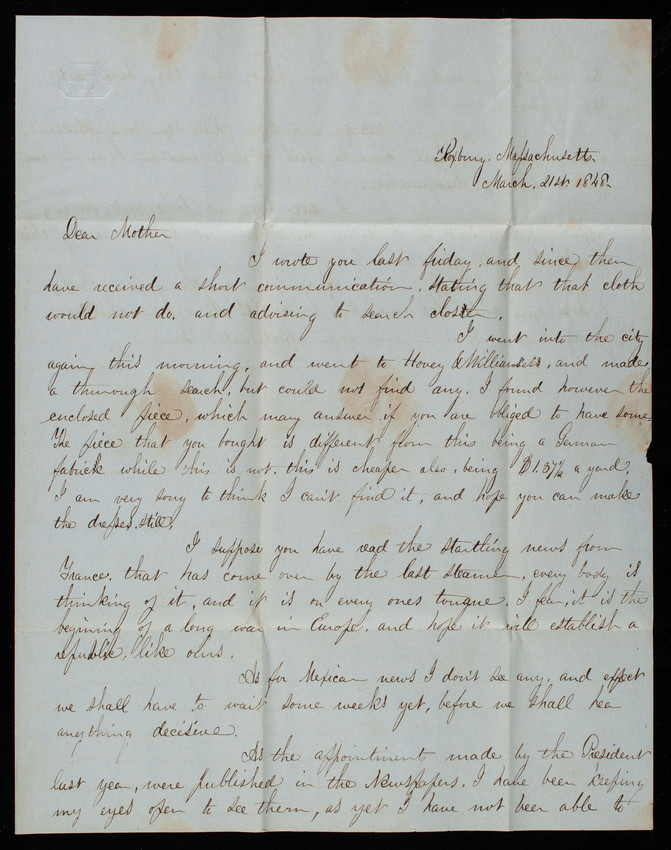 Roxbury. Massachusetts.
March. 21st. 1848.
Dear Mother
I wrote you last friday. and since then
have received a short communication. stating that that cloth
would not do. and advising to search closer.
I went into the city
again, this morning, and went to Hovey & Williams's. and made
a thurough search, but could not find any. I found however the
enclosed piece, which may answer if you are obliged to have some.
The piece that you bought is different from this being a German
fabrick while this is not. this is cheaper also. being $1.37½ a yard.
I am very sorry to think I can't find it, and hope you can make
the dresses. still.
I suppose you have read the startling news from
France. that has come over by the last steamer, every body is
thinking of it, and it is on every ones tongue. I fear, it is the
begining of a long war in Europe. and hope it will establish a
republic, like ours.
As for Mexican news I don't see any. and expect
we shall have to wait some weeks yet, before we shall hear
anything decisive.
As the appointment made by the President
last year, were published in the Newspapers. I have been keeping
my eyes open to see them, as yet I have not been able to